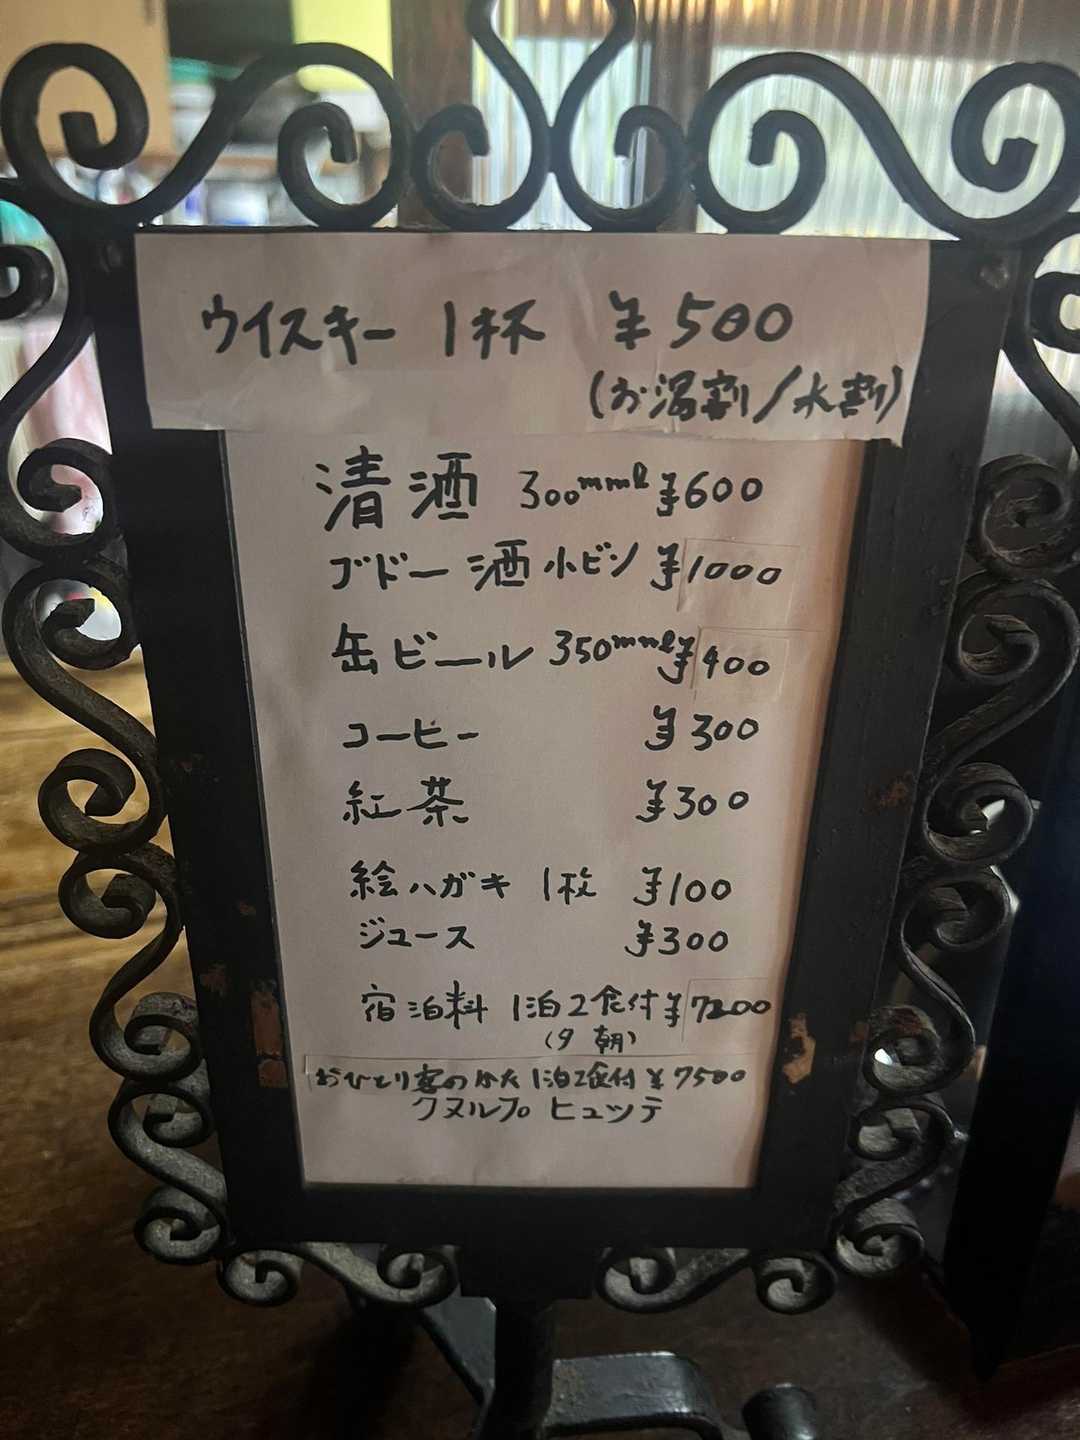 ウイスキー 1杯 ¥500
(お湯割/水割)
清酒 300mml ¥600
ブドー酒 小ビン ¥1000
缶ビール 350mml ¥400
コーヒー ¥300
紅茶 ¥300
絵ハガキ 1枚 ¥100
ジュース ¥300
宿泊料 1泊2食付 ¥7200
(夕朝)
おひとり客のかた 1泊2食付 ¥7500
クヌルプ ヒュッテ